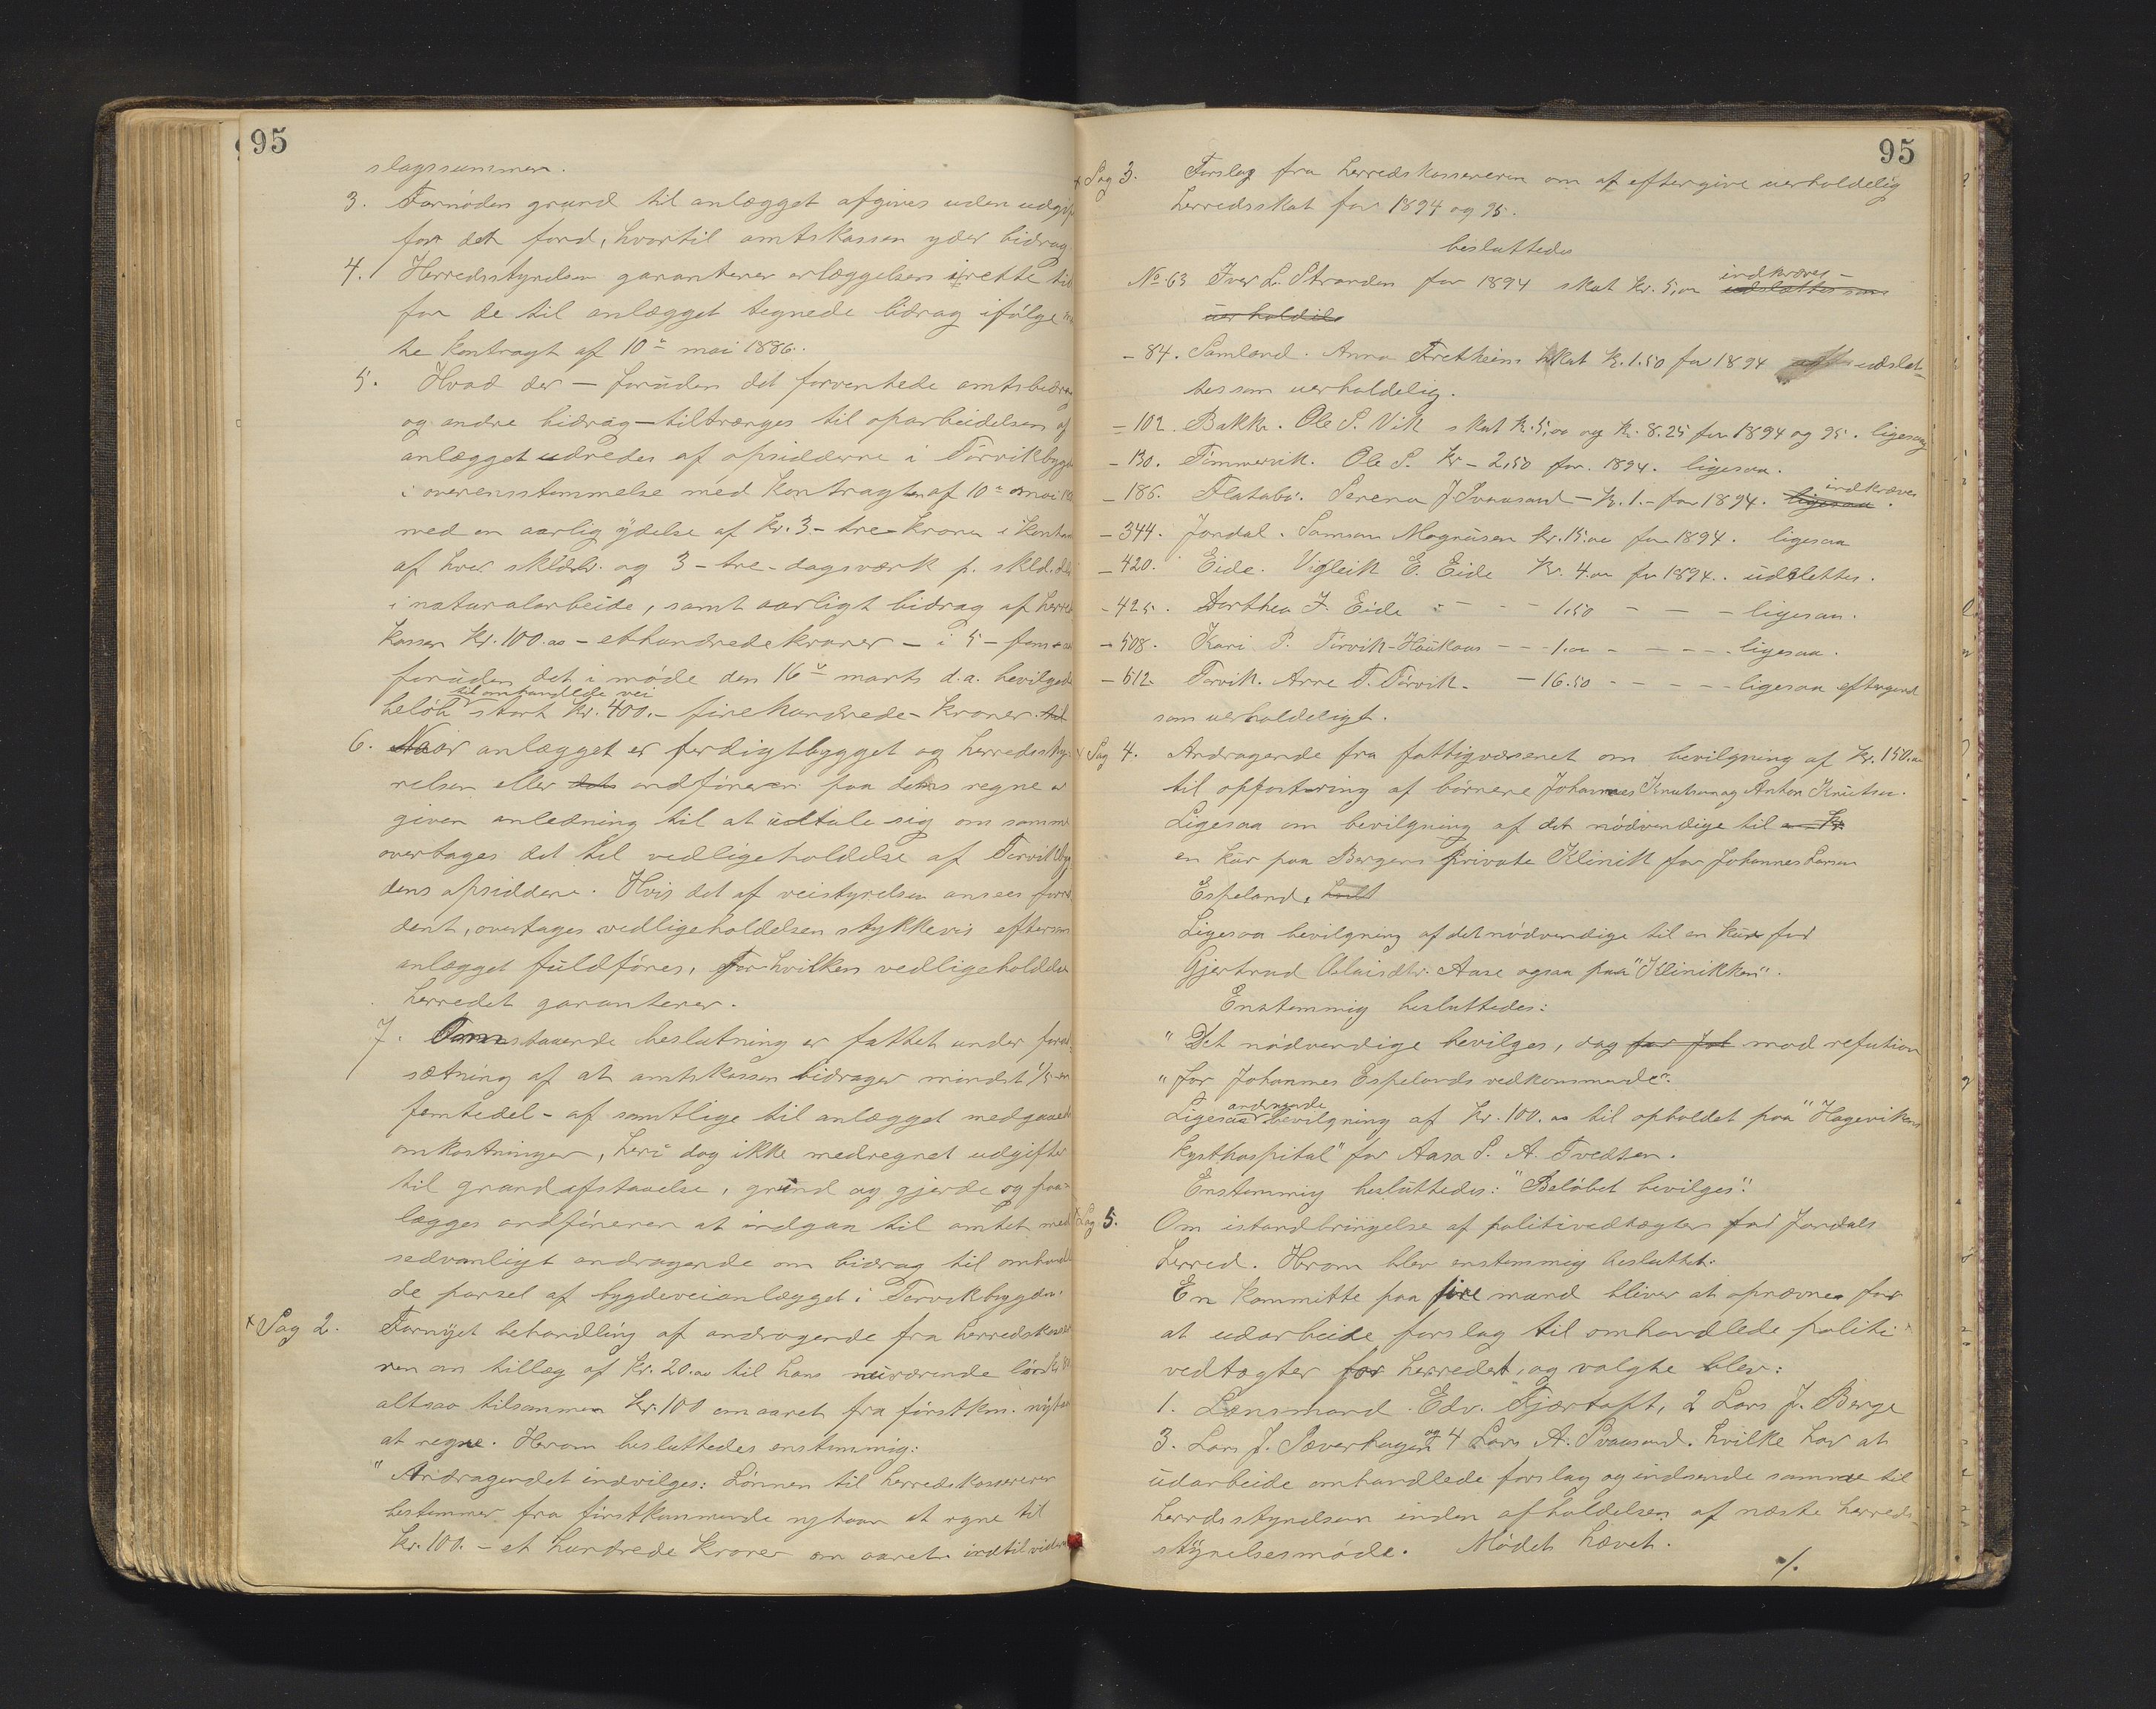 95
slagssummen.
3. Fornøden grund til anlægget afgives uden udgift
for det fond, hvortil amtskassen yder bidrag.
4. Herredsstyrelsen garanterer erlæggelsen i rette tid
for de til anlægget tegnede bidrag ifølge
te kontragt af 10de mai 1886.
5. Hvad der – foruden det forventede amtsbidrag
og andre bidrag – tiltrænges til oparbeidelsen af
anlægget udredes af opsidderne i Torvikbygden
i overensstemmelse med kontragten af 10de mai
med en aarlig ydelse af kr. 3 – tre – kroner i kontant
af hver skldtr. og 3 – tre – dagsværk p. skld. dlr
i naturalarbeide, samt aarligt bidrag af herreds
kassen kr. 100.00 – ethundredekroner – i 5 – fem – aar
foruden det i møde den 16de marts d.a. bevilgede
til omhandlede vei
beløb stort kr. 400.– firehundrede – kroner. til
6. Naar anlægget er ferdigtbygget og herredssty-
relsen eller dets ordføreren paa dens vegne er
given anledning til at udtale sig om samme
overtages det til vedligeholdelse af Torvikbyg
dens opsiddere. Hvis det af veistyrelsen ansees forn
dent, overtages vedligeholdelsen stykkevis eftersom
anlægget fuldføres, for hvilken vedligeholdelse
herredet garanterer.
7. Omstaaende beslutning er fattet under forud-
sætning af at amtskassen bidrager mindst 1/5 – en
femtedel – af samtlige til anlægget medgaaede
omkostninger, heri dog ikke medregnet udgifter
til grundafstaaelse, grind og gjerde og paa-
lægges ordføreren at indgaa til amtet med
sedvanligt andragende om bidrag til omhandle
de parsel af bygdeveianlægget i Torvikbygden.
x Sag 2. Fornyet behandling af andragende fra herredskasse
ren om tillæg af kr. 20.00 til hans nuværende løn
altsaa tilsammen kr. 100 om aaret fra førstkm. nytaar
at regne. Herom besluttedes enstemmig:
"Andragendet indvilges: Lønnen til herredskasserer
bestemmes fra førstkommende nytaar at regne til
kr. 100.– et hundrede kroner om aaret indtil videre
95
x Sag 3. Forslag fra herredskassereren om at eftergive uerholdelig
herredsskat for 1894 og 95.
besluttedes
indkræves –
No. 63 Iver L. Stranden for 1894 skat kr. 5,00 udslettes som
uerholdil
– 84. Samland. Anna Fretheim skat k. 1.50 for 1894 udslet-
tes som uerholdelig.
– 102. Bakke. Ole S. Vik skat kr. 5,00 og kr. 8.25 for 1894 og 95. ligesaa
– 130. Tømmervik. Ole S. kr – 2,50 for 1894. ligesaa.
indkræves
– 186. Flatabø. Serena J Svaasand – kr. 1.– for 1894. ligesaa.
– 344. Jondal. Samson Magnusen kr. 15.00 for 1894. ligesaa
– 420. Eide. Vigleik E. Eide kr. 4.00 for 1894. udslettes.
– 425. Dorthea J. Eide – – – 1.50 – – – ligesaa.
– 508. Kari P. Torvik-Haukaas – – – 1.00 – – – – ligesaa.
– 512. Torvik. Arne T. Torvik. – 16.50 – – – – ligesaa eftergives
som uerholdeligt.
x Sag 4. Andragende fra fattigvæsenet om bevilgning af kr. 150.00
til opfostring af børnene Johannes Knutsen og Anton Knutsen.
Ligesaa om bevilgning af det nødvendige til
en kur paa Bergens private Klinik for Johannes Larsen
Espeland.
Ligesaa bevilgning af det nødvendige til en kur for
Gjertrud Olaisdtr. Aase ogsaa paa "Klinikken".
Enstemmig besluttedes:
"Det nødvendige bevilges, dog for Joh mod refution
"for Johannes Espelands vedkommende".
andragende
Ligesaa bevilgning af kr. 100.00 til opholdet paa "Hagevikens
kysthospital" for Aasa S. A. Tvedten.
Enstemmig besluttedes: "Beløbet bevilges".
x Sag 5. Om istandbringelse af politivedtægter for Jondals
herred. Herom blev enstemmig besluttet:
En kommitte paa fire mand bliver at opnævnes for
at udarbeide forslag til omhandlede politi
vedtægter for herredet, og valgte blev:
1. Lensmand Edv. Fjærtoft, 2 Lars J. Berge
og
3. Lars J. Sæverhagen 4 Lars A. Svaasand. hvilke har at
udarbeide omhandlede forslag og indsende samme til
herredsstyrelsen inden afholdelsen af næste herreds-
styrelsesmøde. Mødet hævet.